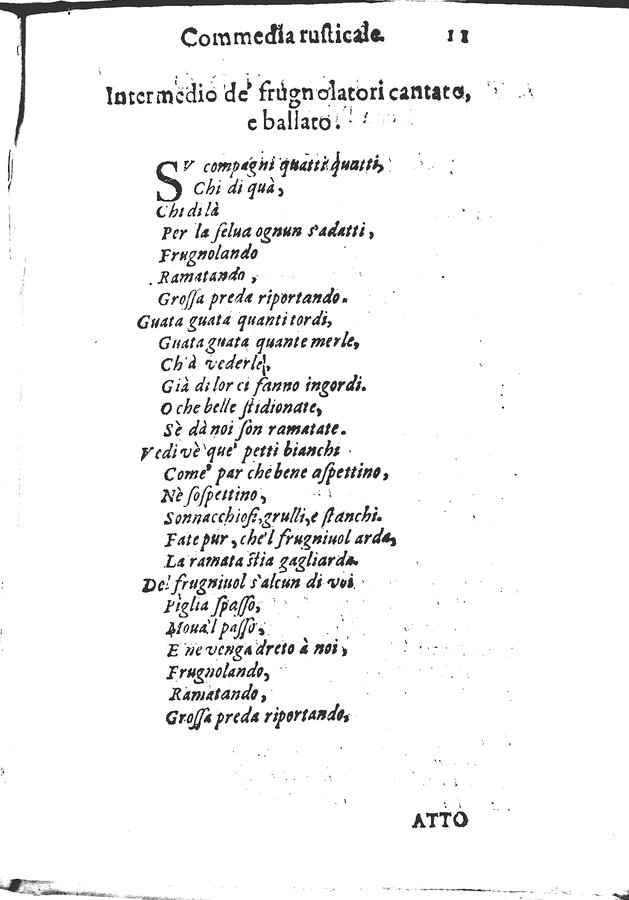 Commedia rusticale. 11
Intermedio de' frugnolatori cantato,
e ballato.
SV compagni quatti quatti,
Chi di quà,
Chi di là
Per la ſelua ognun s'adatti,
Frugnolando
Ramatando,
Groſſa preda riportando.
Guata guata quanti tordi,
Guata guata quante merle,
Ch'à vederle,
Già di lor ci fanno ingordi.
O che belle ſtidionate,
Sè dà noi ſon ramatate.
Vedi vè que' petti bianchi
Come' par che bene aſpettino,
Nè ſoſpettino,
Sonnacchioſi, grulli, e ſtanchi.
Fate pur, che'l frugniuol arda,
La ramata ſtia gagliarda.
De' frugniuol s'alcun di voi
Piglia ſpaſſo,
Moua'l paſſo,
E ne venga dreto à noi,
Frugnolando,
Ramatando,
Groſſa preda riportando,
ATTO